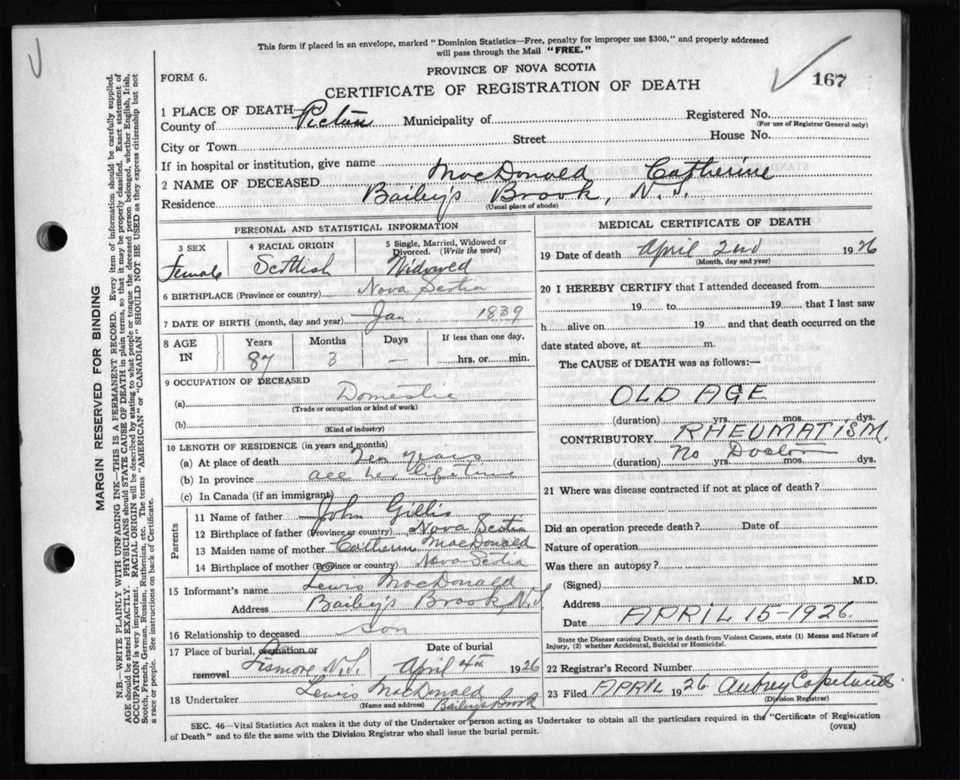 This form if placed in an envelope, marked "Dominion Statistics—Free, penalty for improper use $300," and properly addressed
will pass through the Mail "FREE."
PROVINCE OF NOVA SCOTIA
FORM 6.
CERTIFICATE OF REGISTRATION OF DEATH
167
MARGIN RESERVED FOR BINDING
N.B.—WRITE PLAINLY WITH UNFADING INK—THIS IS A PERMANENT RECORD. Every item of information should be carefully supplied.
AGE should be stated EXACTLY. PHYSICIANS should STATE CAUSE OF DEATH in plain terms, so that it may be properly classified. Exact statement of
OCCUPATION is very important. RACIAL ORIGIN will be described by stating to what people or tongue the deceased person belonged, whether English, Irish,
Scotch, French, German, Russian, Ruthenian, etc. The terms "AMERICAN" or "CANADIAN" SHOULD NOT BE USED as they express citizenship but not
a race or people. See instructions on back of Certificate.
1 PLACE OF DEATH
County of Pictou Municipality of
Registered No.
(For use of Registrar General only)
City or Town Street House No.
If in hospital or institution, give name
2 NAME OF DECEASED MacDonald Catherine
Residence Bailey's Brook, N.S.
(Usual place of abode)
PERSONAL AND STATISTICAL INFORMATION
3 SEX
Female
4 RACIAL ORIGIN
Scottish
5 Single, Married, Widowed or
Divorced. (Write the word)
Widowed
6 BIRTHPLACE (Province or country) Nova Scotia
7 DATE OF BIRTH (month, day and year) Jan 1839
8 AGE
IN
Years Months Days If less than one day,
87 3 — hrs. or min.
9 OCCUPATION OF DECEASED
(a) Domestic
(Trade or occupation or kind of work)
(b)
(Kind of industry)
10 LENGTH OF RESIDENCE (in years and months)
(a) At place of death Ten years
(b) In province all her lifetime
(c) In Canada (if an immigrant)
Parents
11 Name of father John Gillis
12 Birthplace of father (Province or country) Nova Scotia
13 Maiden name of mother Catherine MacDonald
14 Birthplace of mother (Province or country) Nova Scotia
15 Informant's name Lewis MacDonald
Address Bailey's Brook N.S.
16 Relationship to deceased son
17 Place of burial, cremation or
removal Lismore N.S.
Date of burial
April 4th 1926
18 Undertaker Lewis MacDonald
(Name and address) Bailey's Brook
MEDICAL CERTIFICATE OF DEATH
19 Date of death April 2nd 1926
(Month, day and year)
20 I HEREBY CERTIFY that I attended deceased from
19 to 19 that I last saw
h alive on 19 and that death occurred on the
date stated above, at m.
The CAUSE of DEATH was as follows:—
OLD AGE
(duration) yrs. mos. dys.
CONTRIBUTORY RHEUMATISM.
No Doctor
(duration) yrs. mos. dys.
21 Where was disease contracted if not at place of death?
Did an operation precede death? Date of
Nature of operation
Was there an autopsy?
(Signed) M.D.
Address
Date APRIL 15-1926.
State the Disease causing Death, or in death from Violent Causes, state (1) Means and Nature of
Injury, (2) whether Accidental, Suicidal or Homicidal.
22 Registrar's Record Number
23 Filed APRIL 1926 Aubrey
(Division Registrar)
SEC. 46—Vital Statistics Act makes it the duty of the Undertaker or person acting as Undertaker to obtain all the particulars required in the "Certificate of Registration
of Death" and to file the same with the Division Registrar who shall issue the burial permit.
(OVER)